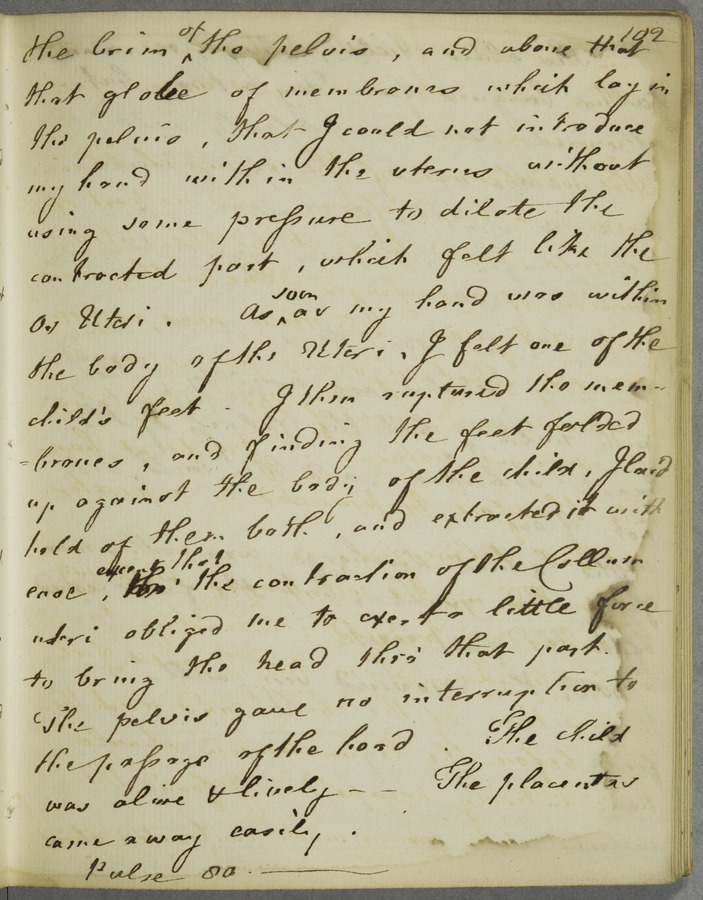 192
the brim of the pelvis, and above that
that globe of membranes which lay in
the pelvis, that I could not introduce
my hand within the uterus without
using some pressure to dilate the
contracted part, which felt like the
Os Uteri. As soon as my hand was within
the body of the Uteri, I felt one of the
child's feet. I then ruptured the mem-
-branes, and finding the feet folded
up against the body of the child, I laid
hold of them both, and extracted it with
ease, except that the contraction of the Collum
uteri obliged me to exert a little force
to bring the head thro' that part.
The pelvis gave no interruption to
the passage of the head. The child
was alive & lively — The placentas
came away easily.
Pulse 80.